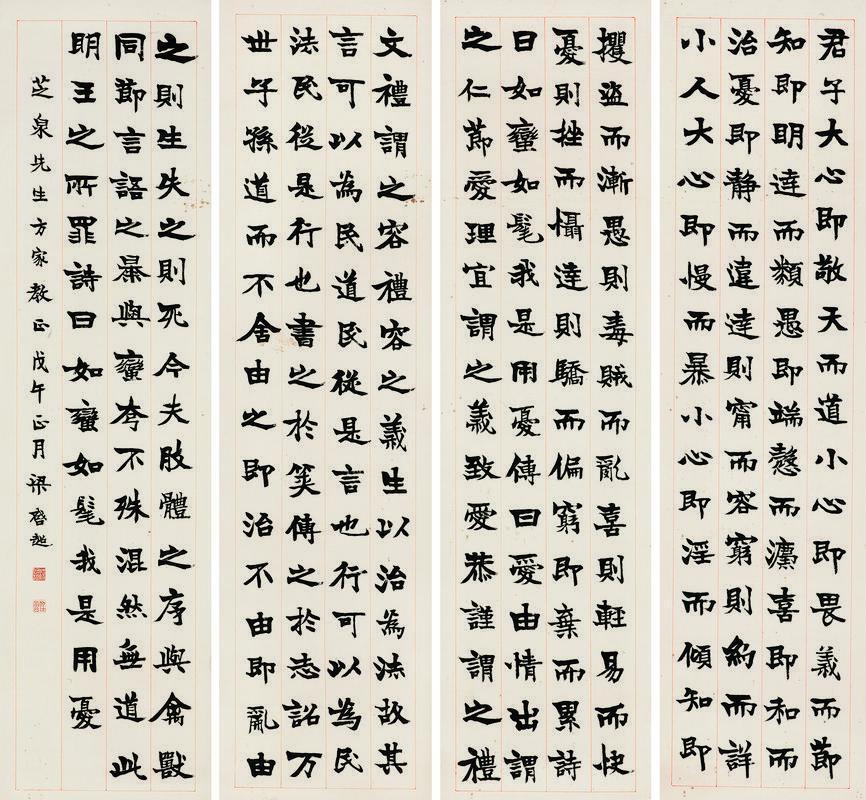 君子大心即敬天而道小心即畏義而節
知即明達而類愚即端慤而灋喜即和而
治憂即静而違達則甯而容窮則約而詳
小人大心即慢而暴小心即淫而傾知即
攫盜而漸愚則毒賊而亂喜則輕易而快
憂則挫而懾達則驕而偏窮即棄而累詩
曰如蠻如髦我是用憂傳曰愛由情出謂
之仁節愛理宜謂之義致愛恭謹謂之禮
文禮謂之容禮容之義生以治為法故其
言可以為民道民從是言也行可以為民
法民從是行也書之於筴傳之於志詔万
世子孫道而不舍由之即治不由即亂由
之則生失之則死今夫肢體之序與禽獸
同節言語之暴與蠻夸不殊混然無道此
明王之所罪詩曰如蠻如髦我是用憂
芝泉先生方家教正戊午正月梁啓超